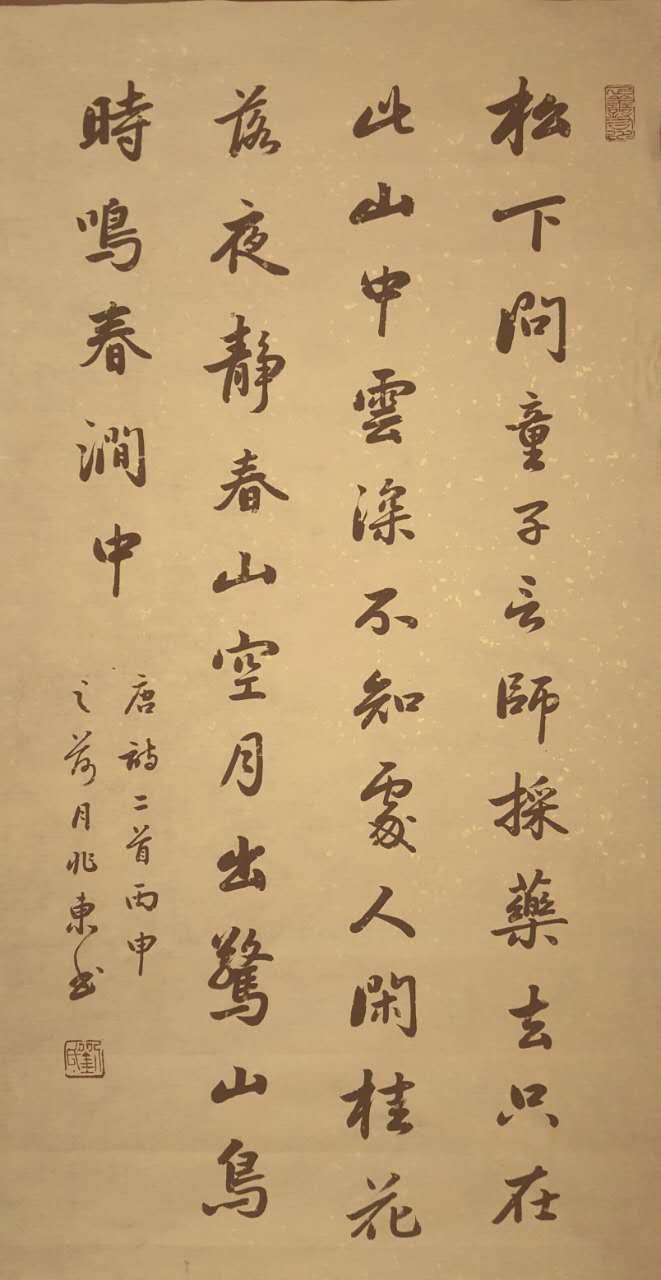 松下問童子言師採藥去只在
此山中雲深不知處人閑桂花
落夜靜春山空月出驚山鳥
時鳴春澗中
唐詩二首丙申
之荷月兆東书